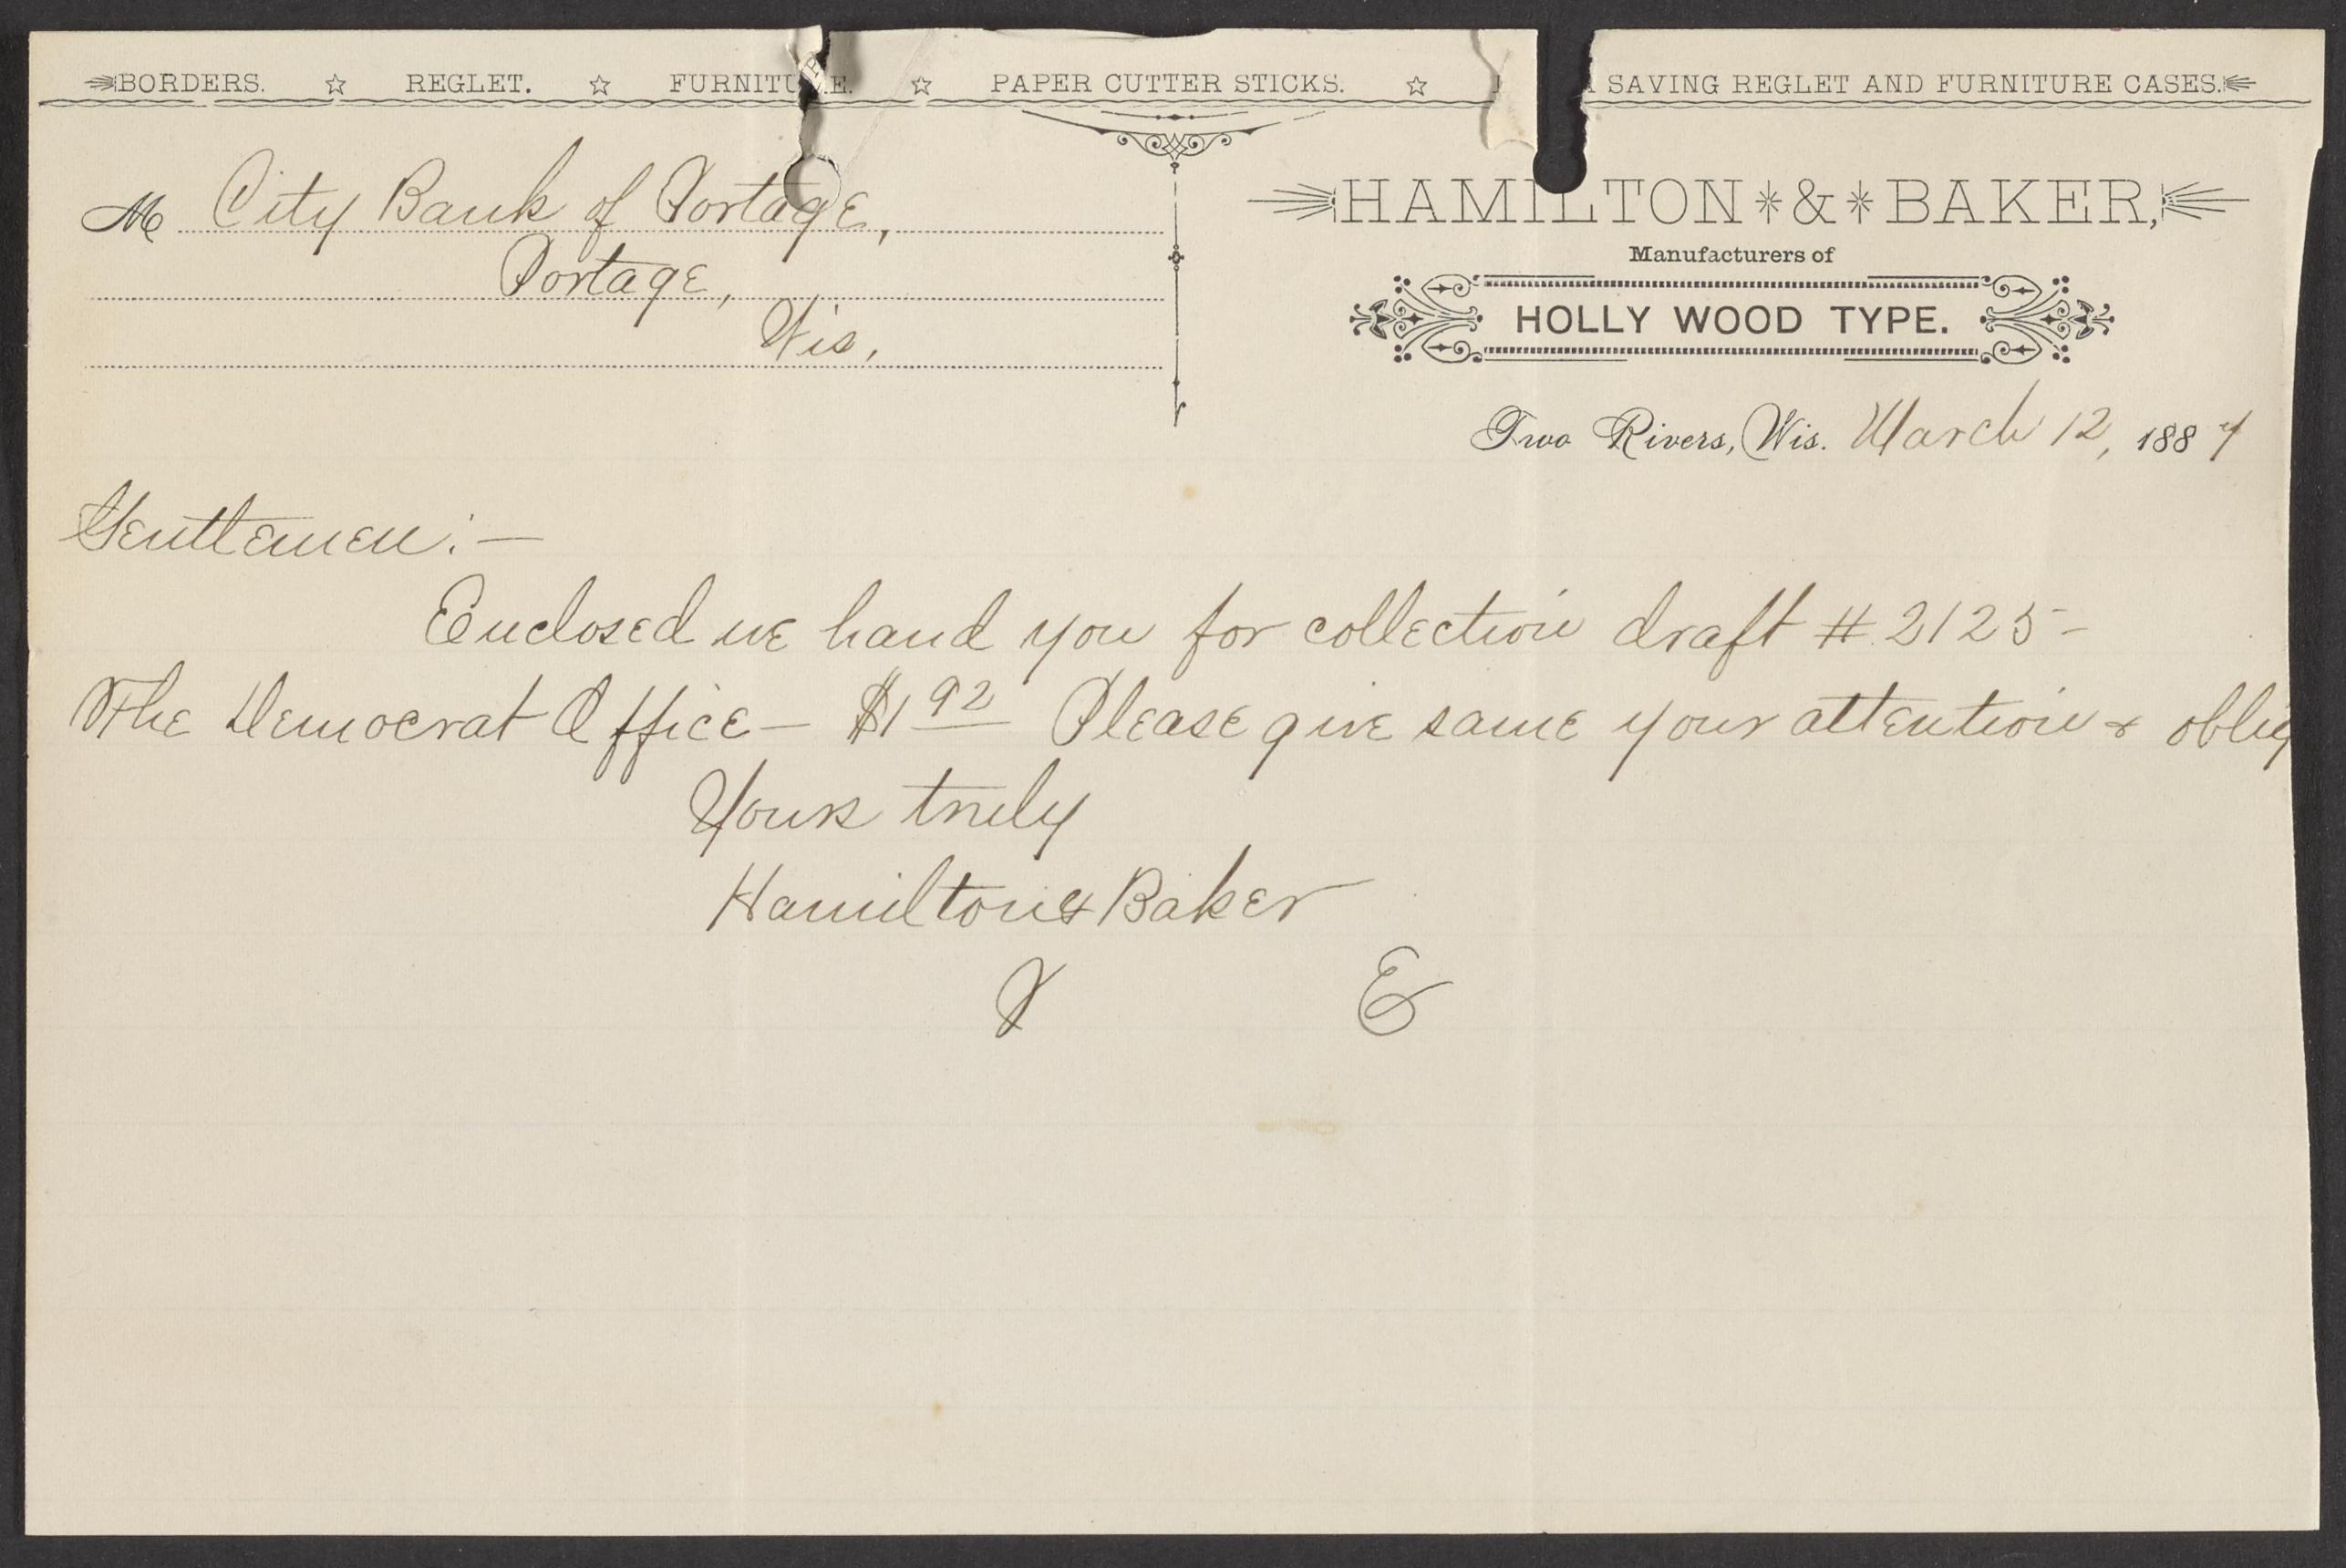 BORDERS. ☆ REGLET. ☆ FURNITURE. ☆ PAPER CUTTER STICKS. ☆ SAVING REGLET AND FURNITURE CASES.
M City Bank of Portage,
Portage,
Wis,
HAMILTON * & * BAKER,
Manufacturers of
HOLLY WOOD TYPE.
Two Rivers, Wis. March 12, 1887
Gentlemen:—
Enclosed we hand you for collection draft # 2125–
The Democrat Office – $1 92 Please give same your attention & oblig
Yours truly
Hamilton & Baker
E